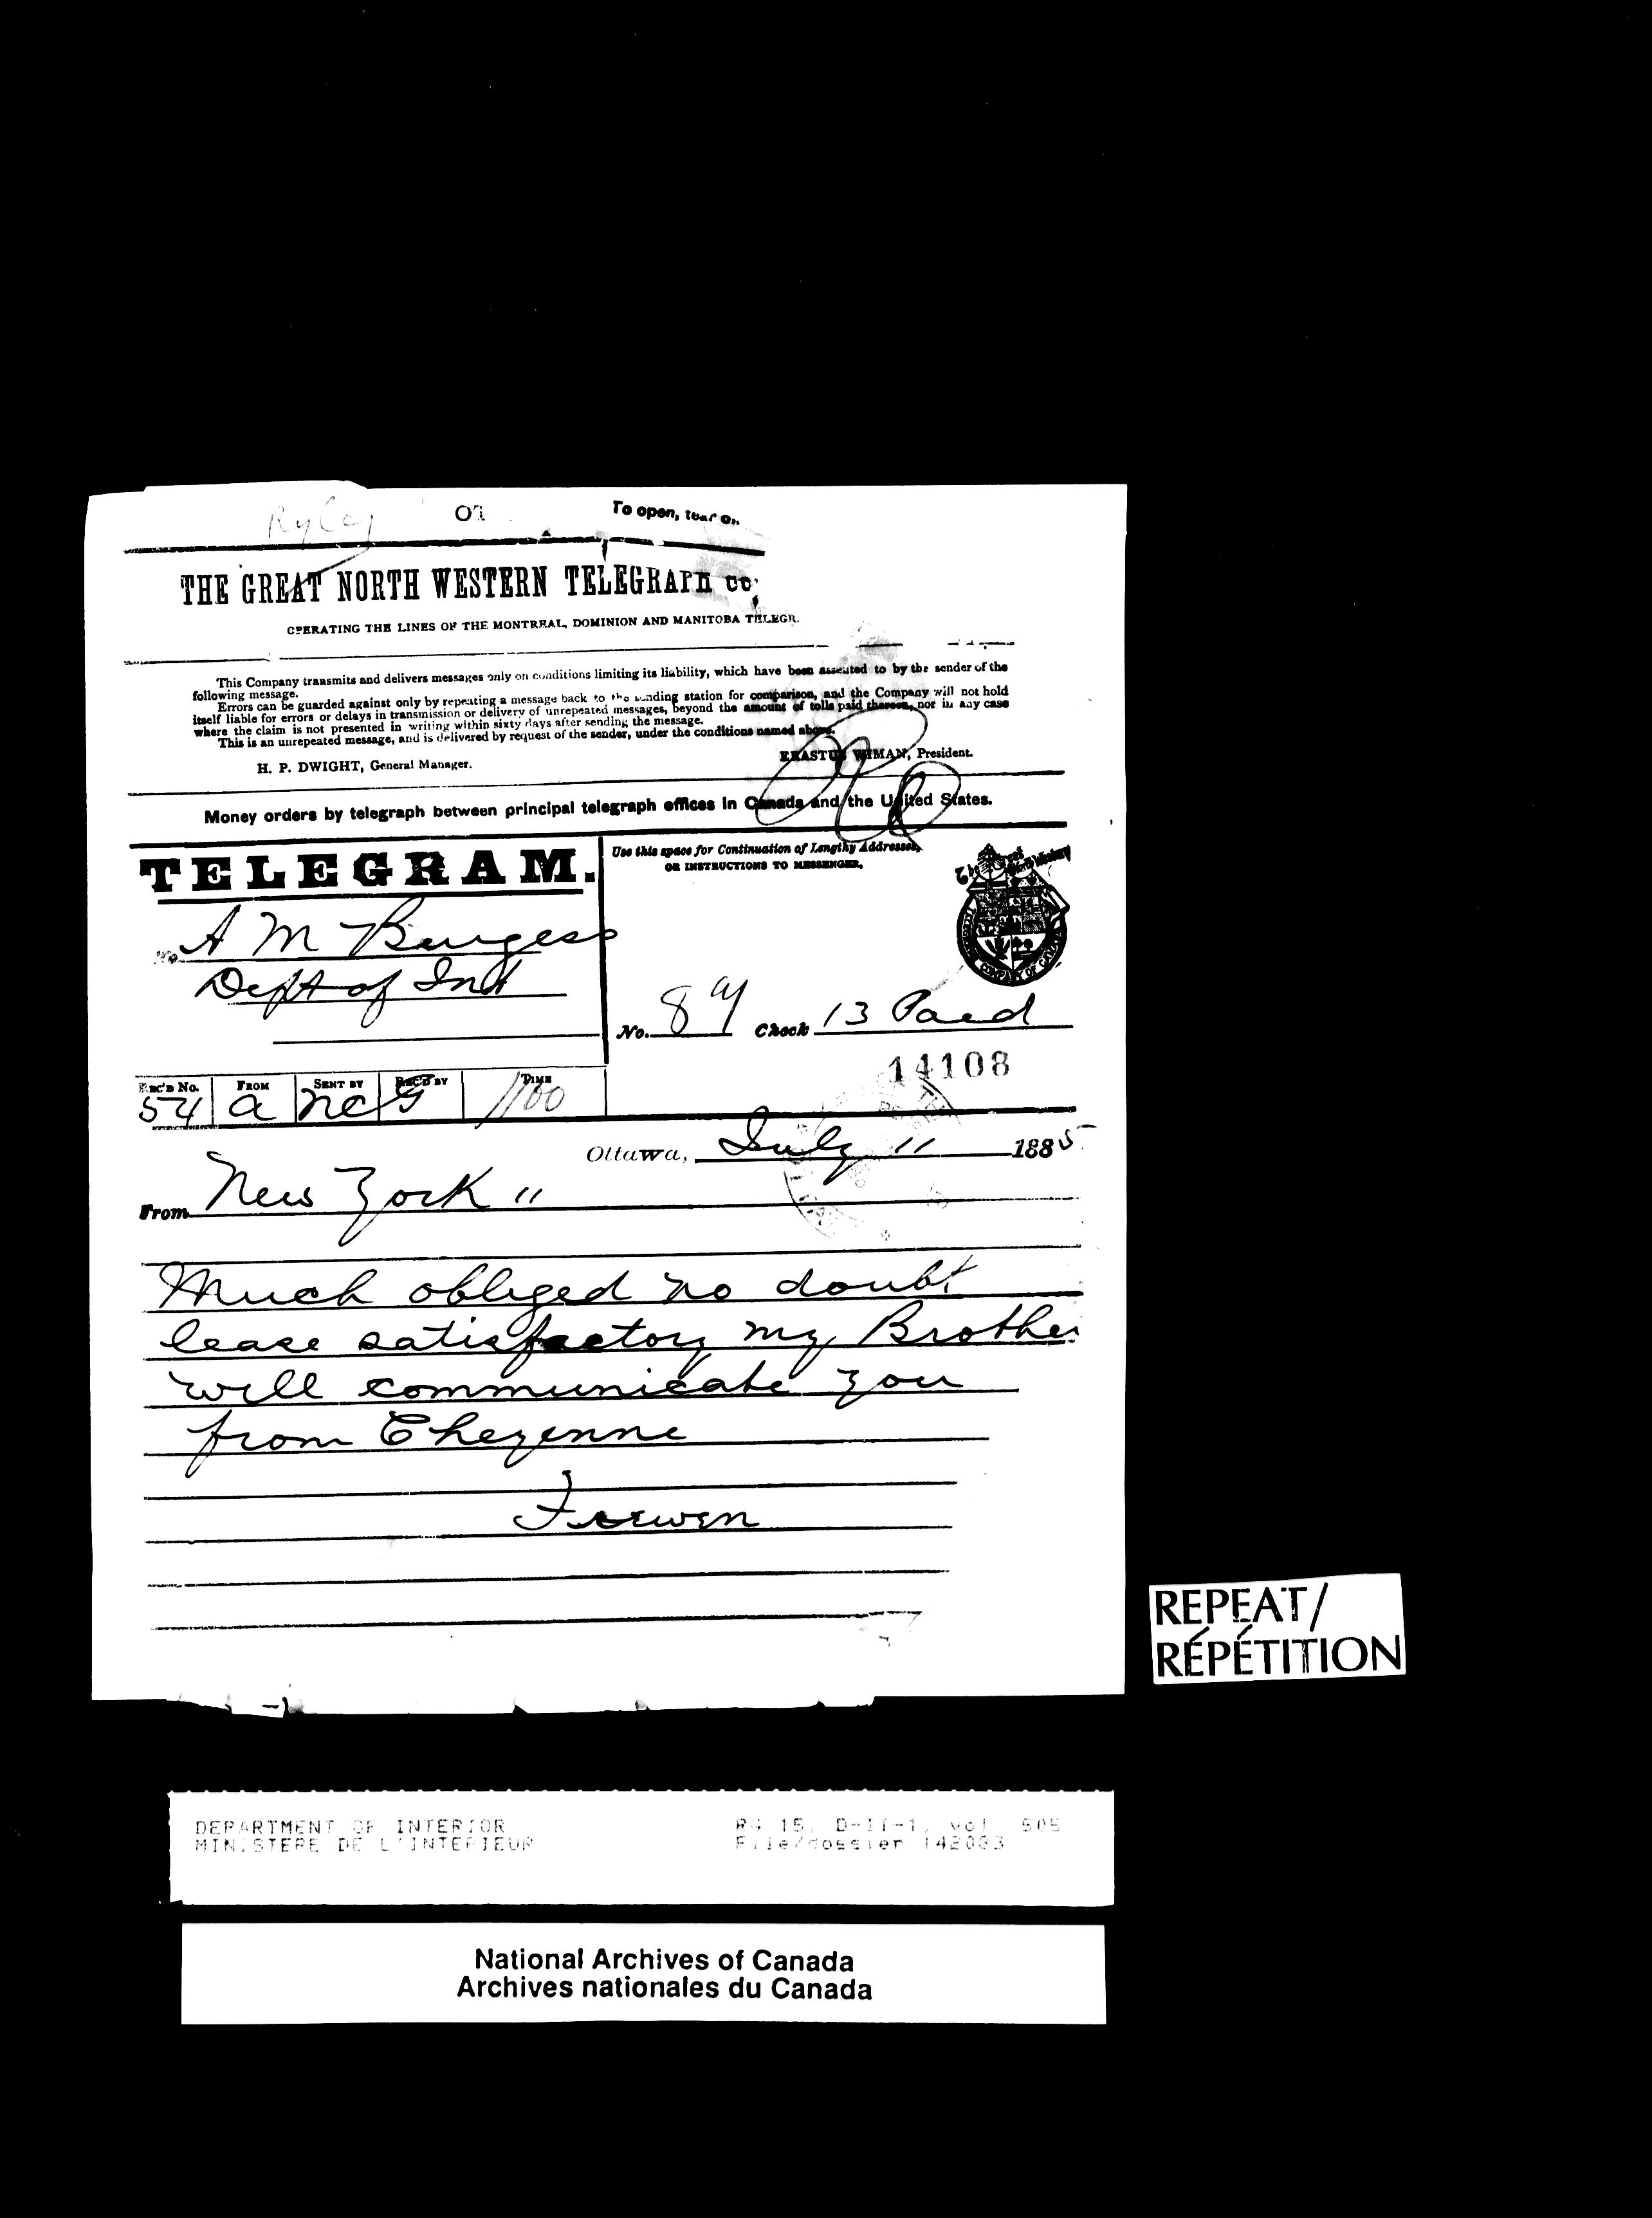 Ryley
To open, tear
THE GREAT NORTH WESTERN TELEGRAPH CO
OPERATING THE LINES OF THE MONTREAL, DOMINION AND MANITOBA TELEGR.
This Company transmits and delivers messages only on conditions limiting its liability, which have been assented to by the sender of the
following message.
Errors can be guarded against only by repeating a message back to the sending station for comparison, and the Company will not hold
itself liable for errors or delays in transmission or delivery of unrepeated messages, beyond the amount of tolls paid thereon, nor in any case
where the claim is not presented in writing within sixty days after sending the message.
This is an unrepeated message, and is delivered by request of the sender, under the conditions named above.
ERASTUS WIMAN, President.
H. P. DWIGHT, General Manager.
Money orders by telegraph between principal telegraph offices in Canada and the United States.
TELEGRAM.
Use this space for Continuation of Lengthy Addresses,
OR INSTRUCTIONS TO MESSENGER.
A M Burgess
Dept of Int
No. 8 Check 13 Paid
14108
REC'D No. FROM SENT BY REC'D BY TIME
54 a nc G 1100
Ottawa, July 11 1885
From New York 11
Much obliged no doubt
lease satisfactory my Brother
will communicate you
from Cheyenne
Frewen
REPEAT/
RÉPÉTITION
DEPARTMENT OF INTERIOR RG 15, D-II-1, vol. 505
MINISTERE DE L'INTERIEUR File/dossier 142083
National Archives of Canada
Archives nationales du Canada